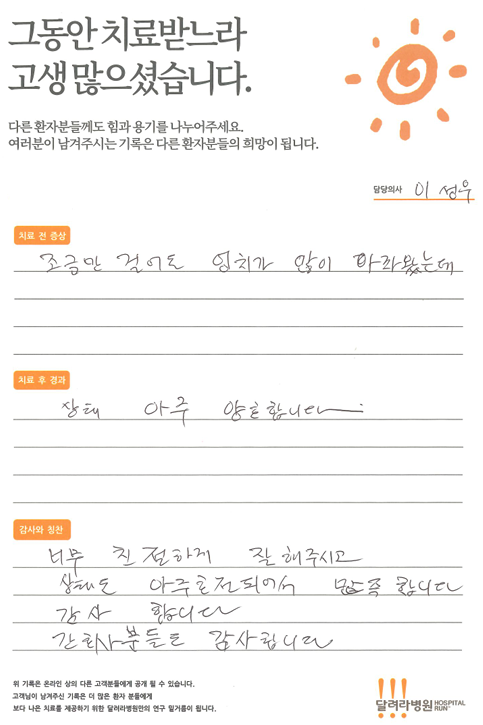 그동안 치료받느라
고생 많으셨습니다.
다른 환자분들께도 힘과 용기를 나누어주세요.
여러분이 남겨주시는 기록은 다른 환자분들의 희망이 됩니다.
담당의사 이 성우
치료 전 증상
조금만 걸어도 엄치가 많이 아파왔는데
치료 후 경과
상태 아주 양호합니다
감사와 칭찬
너무 친절하게 잘해주시고
상태도 아주 호전되어서 만족합니다
감사 합니다
간호사분들도 감사합니다
위 기록은 온라인 상의 다른 고객분들에게 공개 될 수 있습니다.
고객님이 남겨주신 기록은 더 많은 환자 분들에게
보다 나은 치료를 제공하기 위한 달려라병원만의 연구 밑거름이 됩니다.
달려라병원 HOSPITAL RUN